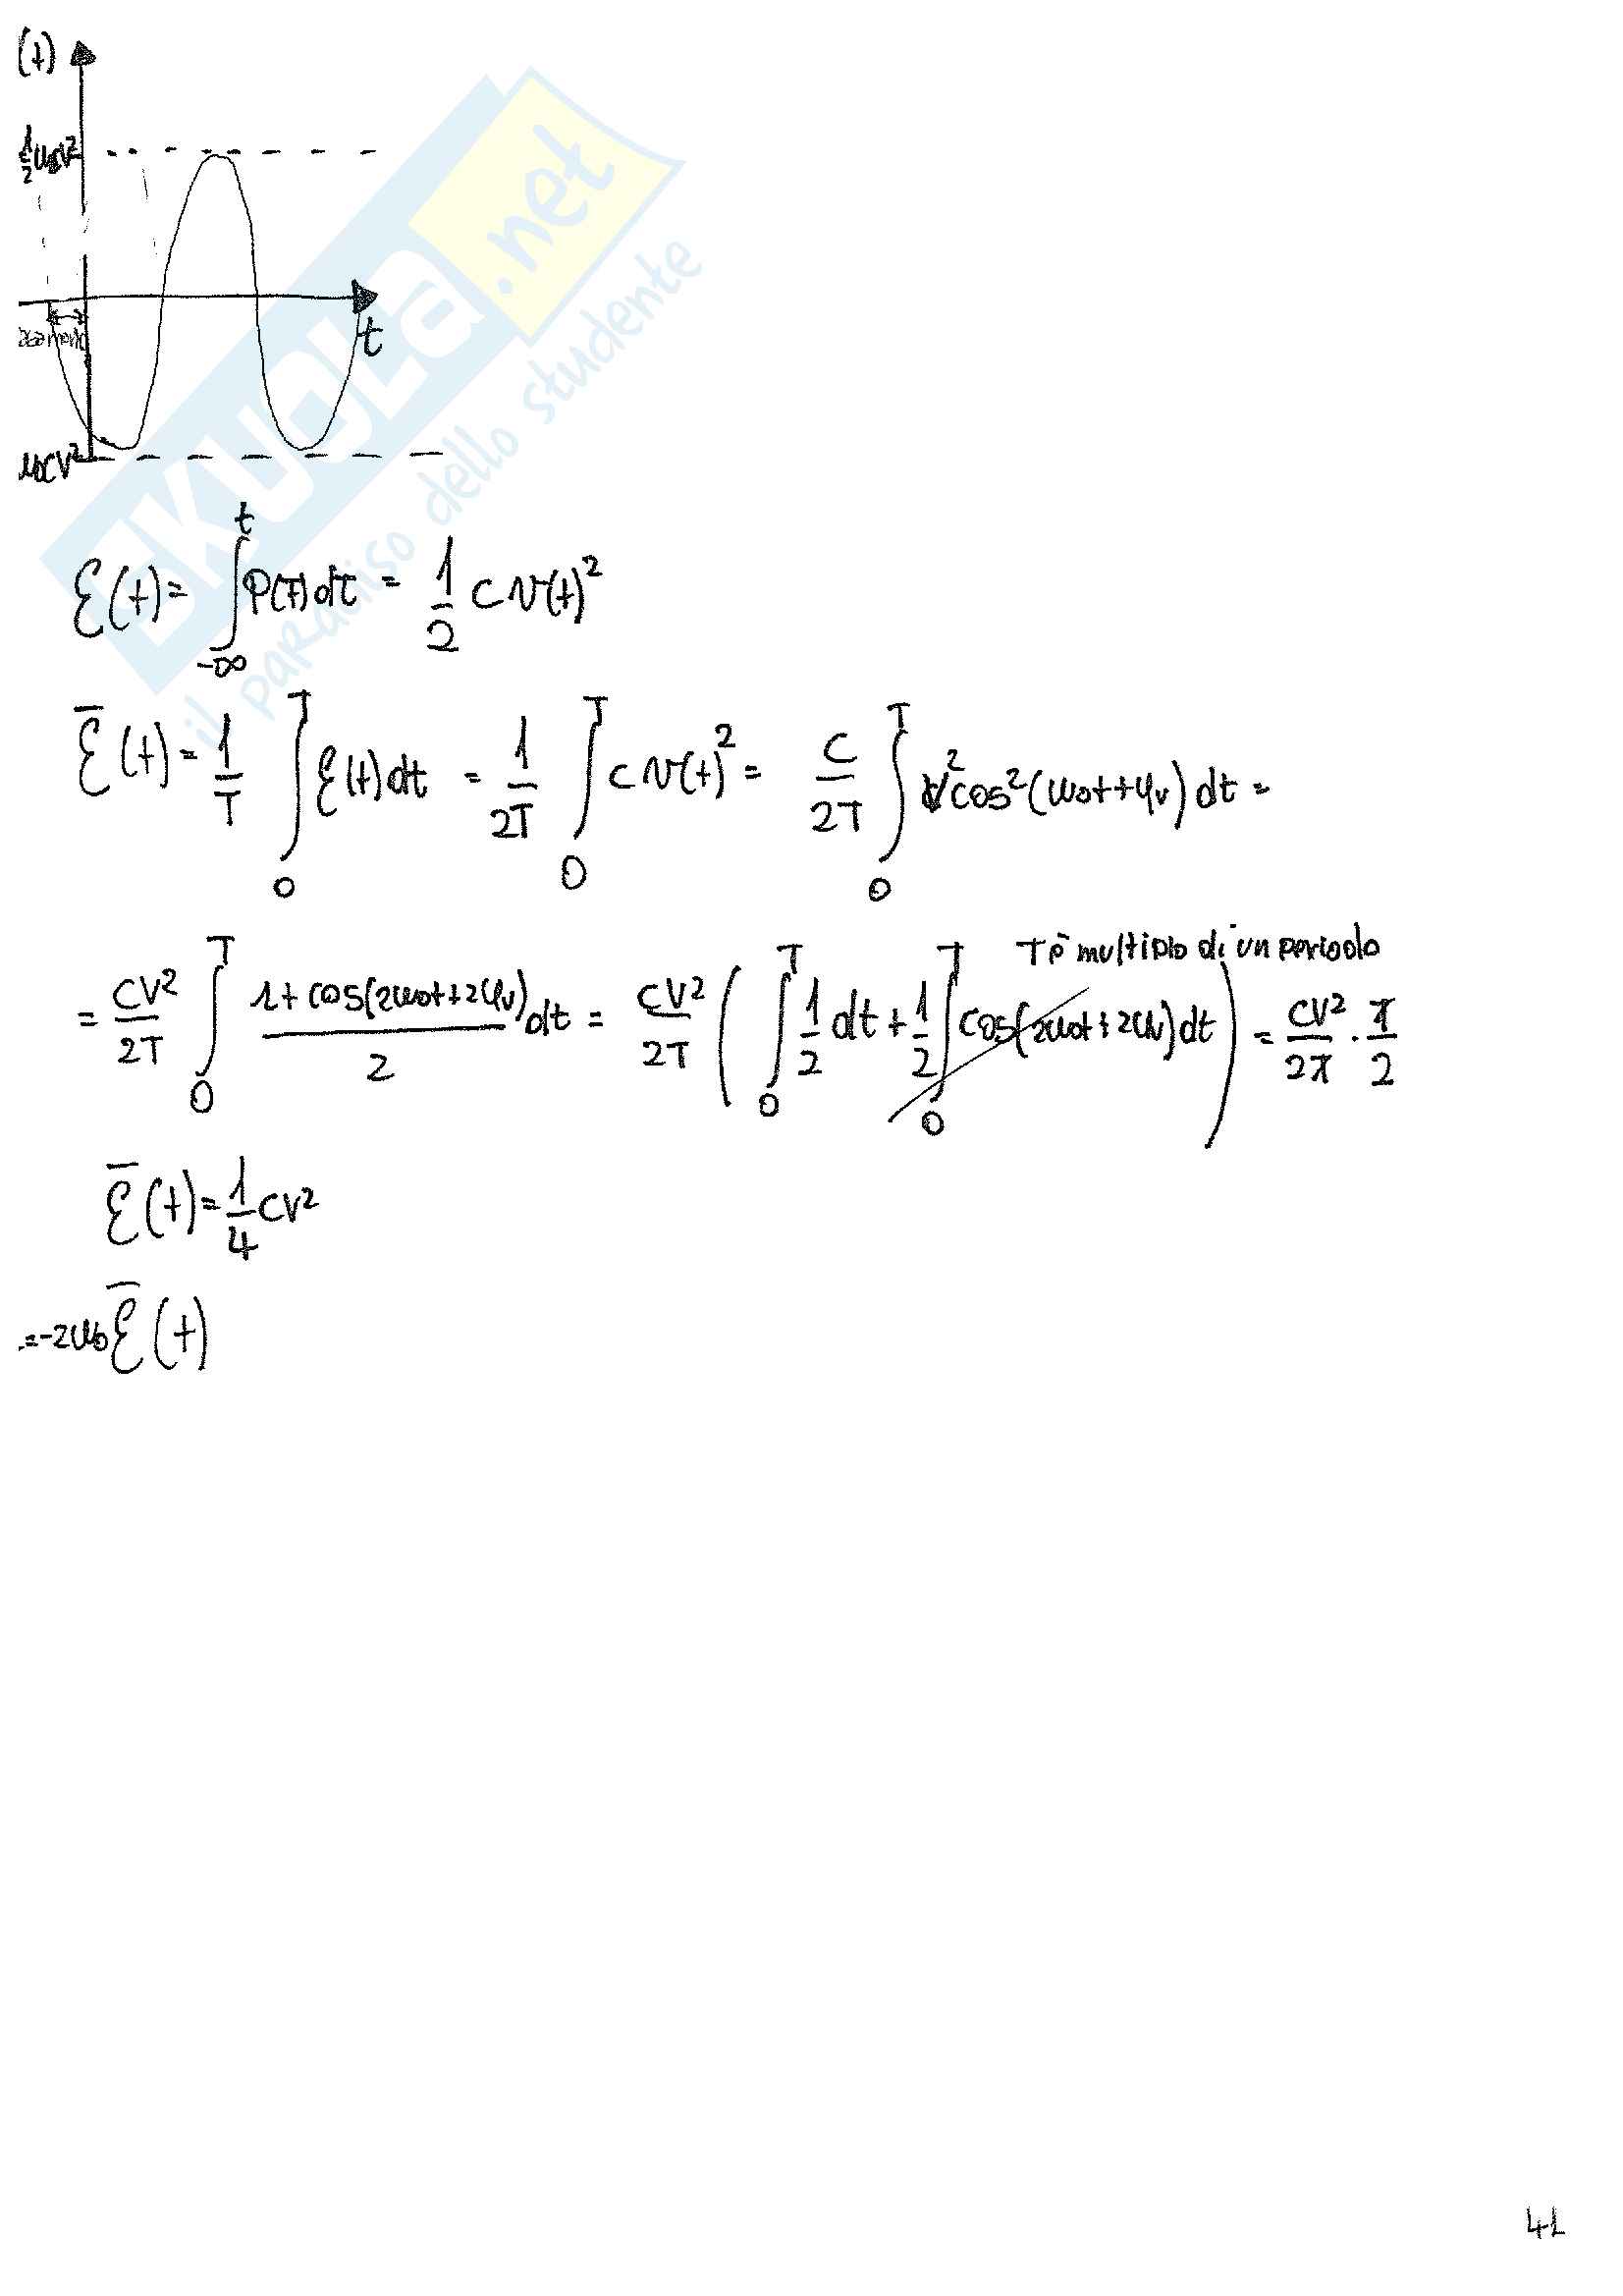 (t)
1/2 ω₀CV²
t
ω₀CV²
SKUOLA.net
il paradiso dello studente
ℰ(t) = ∫_{-∞}^{t} P(τ)dτ = 1/2 C v(t)²
ℰ̅(t) = 1/T ∫_0^T ℰ(t)dt = 1/2T ∫_0^T C v(t)² = C/2T ∫_0^T V² cos²(ω₀t+φᵥ)dt =
T è multiplo di un periodo
= CV²/2T ∫_0^T (1+cos(2ω₀t+2φᵥ))/2 dt = CV²/2T ( ∫_0^T 1/2 dt + 1/2 ∫_0^T cos(2ω₀t+2φᵥ)dt ) = CV²/2T · T/2
ℰ̅(t) = 1/4 CV²
= -2ω₀ ℰ̅(t)
41